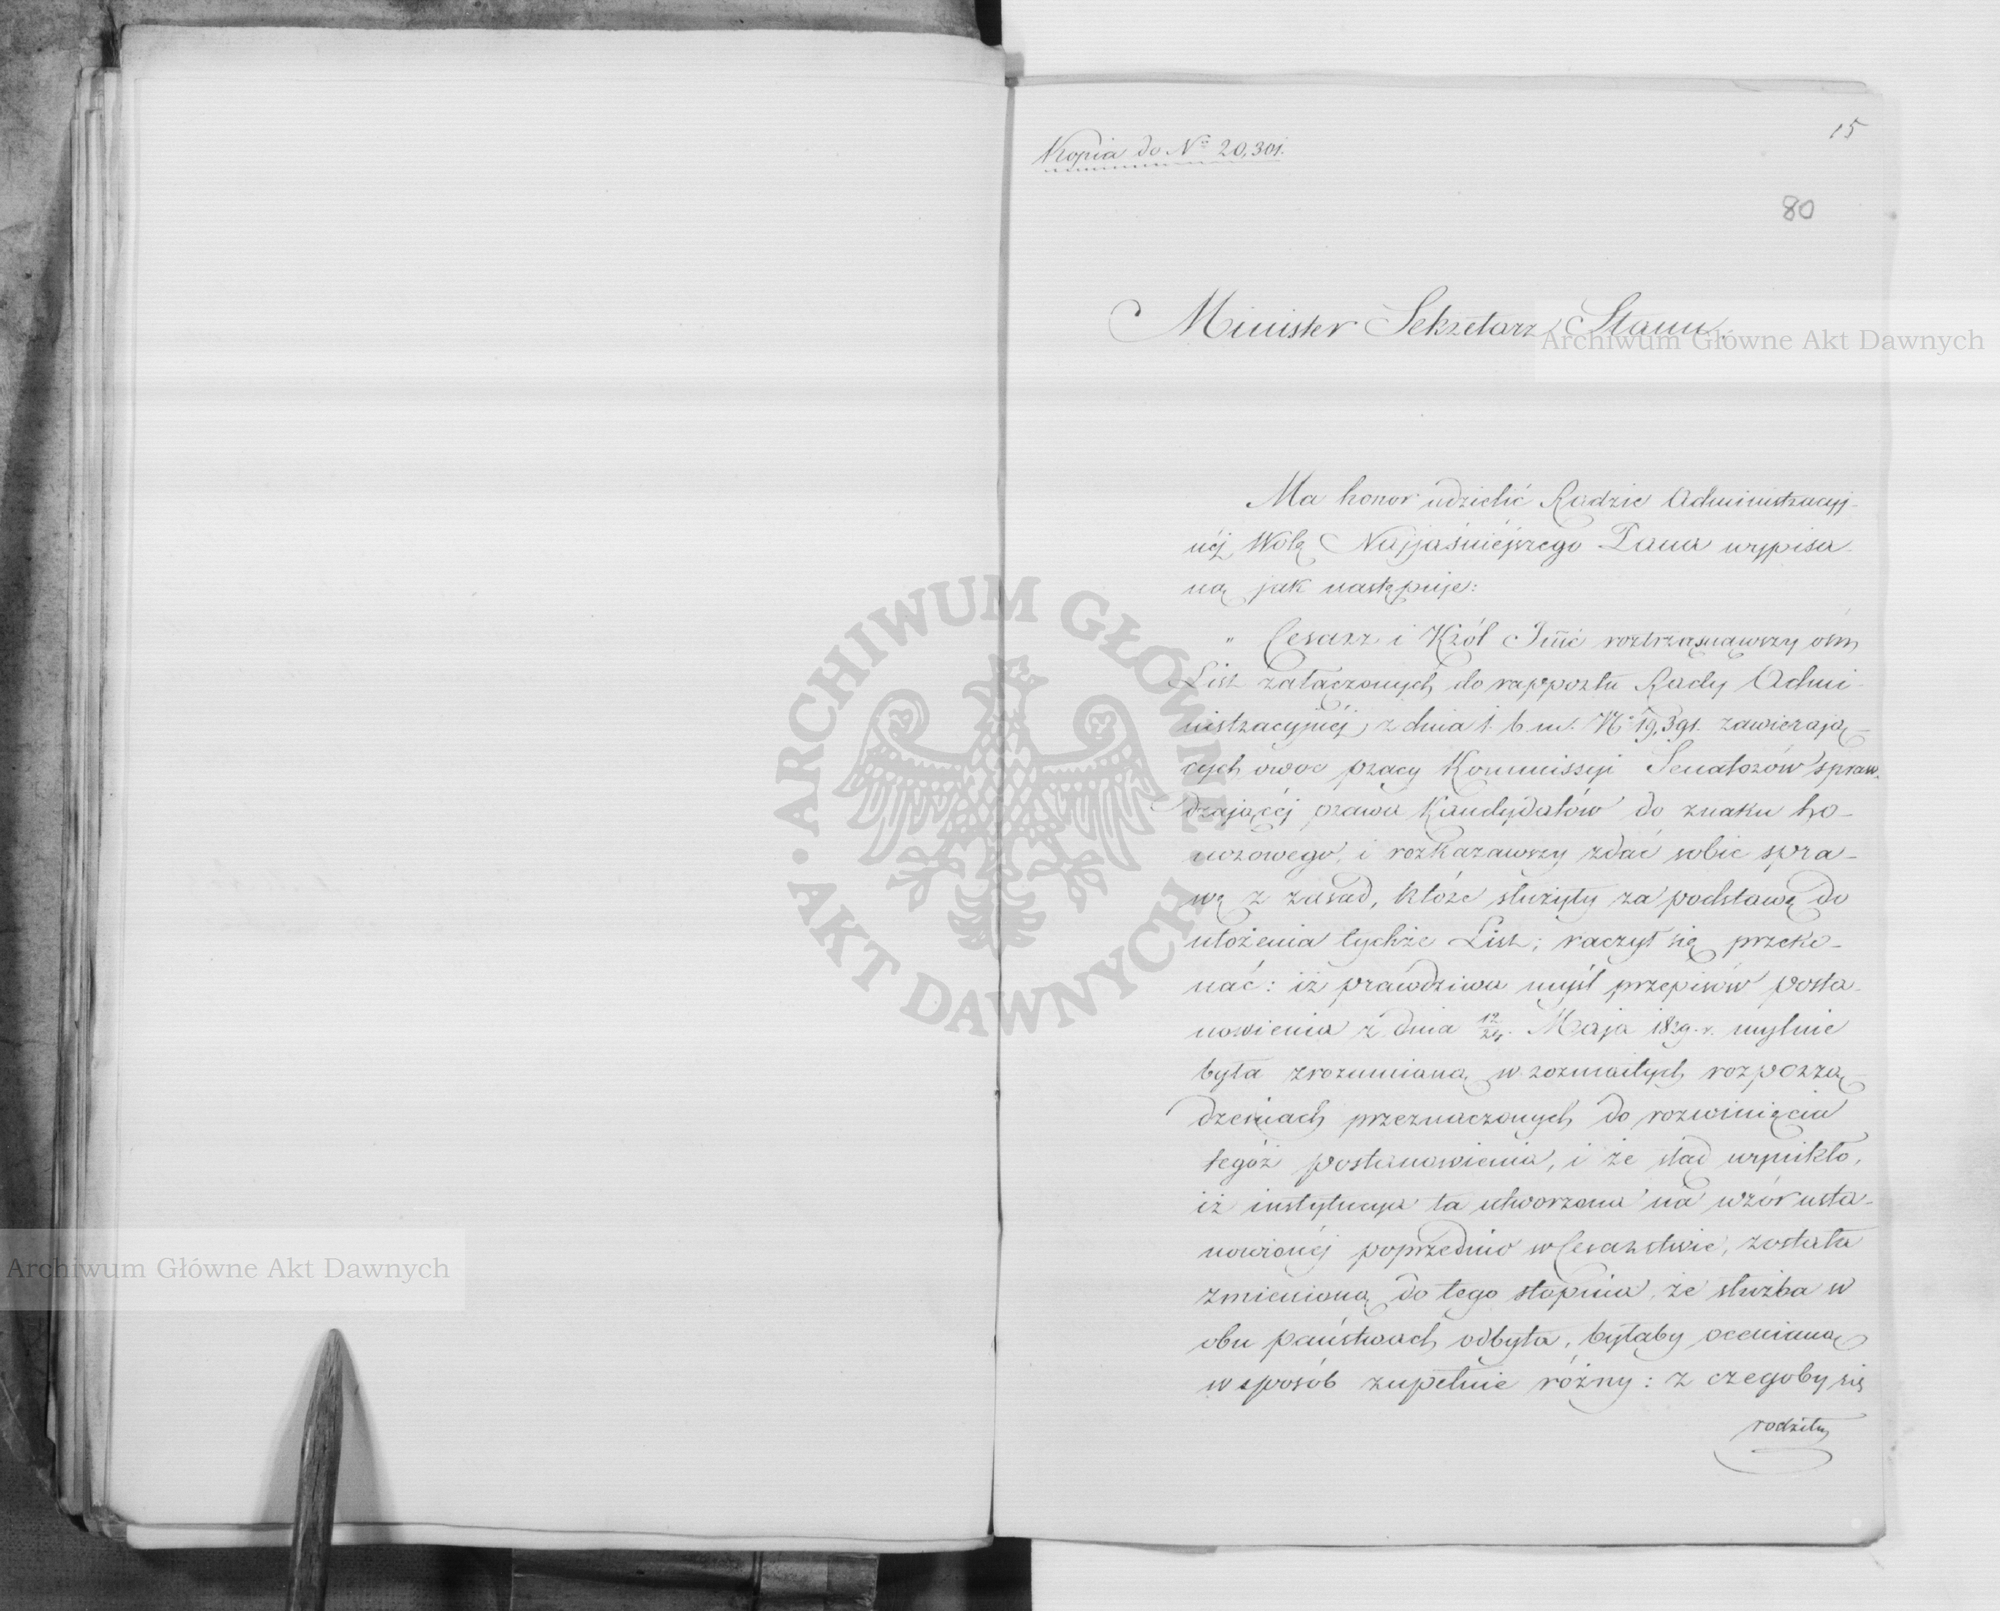 15
Kopia do Nº 20,301.
80
Minister Sekretarz Stanu,
Archiwum Główne Akt Dawnych
Ma honor udzielić Radzie Administracyj-
néj, Wolę Najjaśniéjszego Pana wypisa-
ną jak następuje:
" Cesarz i Król Jmć roztrząsnąwszy ośm
List załączonych do rapportu Rady Admi-
nistracyjnéj z dnia 1. b. m. Nº 19,391. zawierają-
cych owoc pracy Kommissyi Senatorów spraw-
dzającéj prawa Kandydatów do znaku ho-
norowego, i rozkazawszy zdać sobie spra-
wę z zasad, które służyły za podstawę do
ułożenia tychże List; raczył się przeko-
nać: iż prawdziwa myśl przepisów posta-
nowienia z dnia 12/24. Maja 1829. r. mylnie
była zrozumianą w rozmaitych rozporzą-
dzeniach przeznaczonych do rozwinięcia
tegóż postanowienia, i że stąd wynikło,
iż instytucya ta utworzona na wzór usta-
nowionéj poprzednio w Cesarstwie, została
zmienioną do tego stopnia, że służba w
obu państwach odbyta, byłaby ocenianą
w sposób zupełnie różny: z czegoby się
rodziły
ARCHIWUM GŁÓWNE · AKT DAWNYCH ·
Archiwum Główne Akt Dawnych